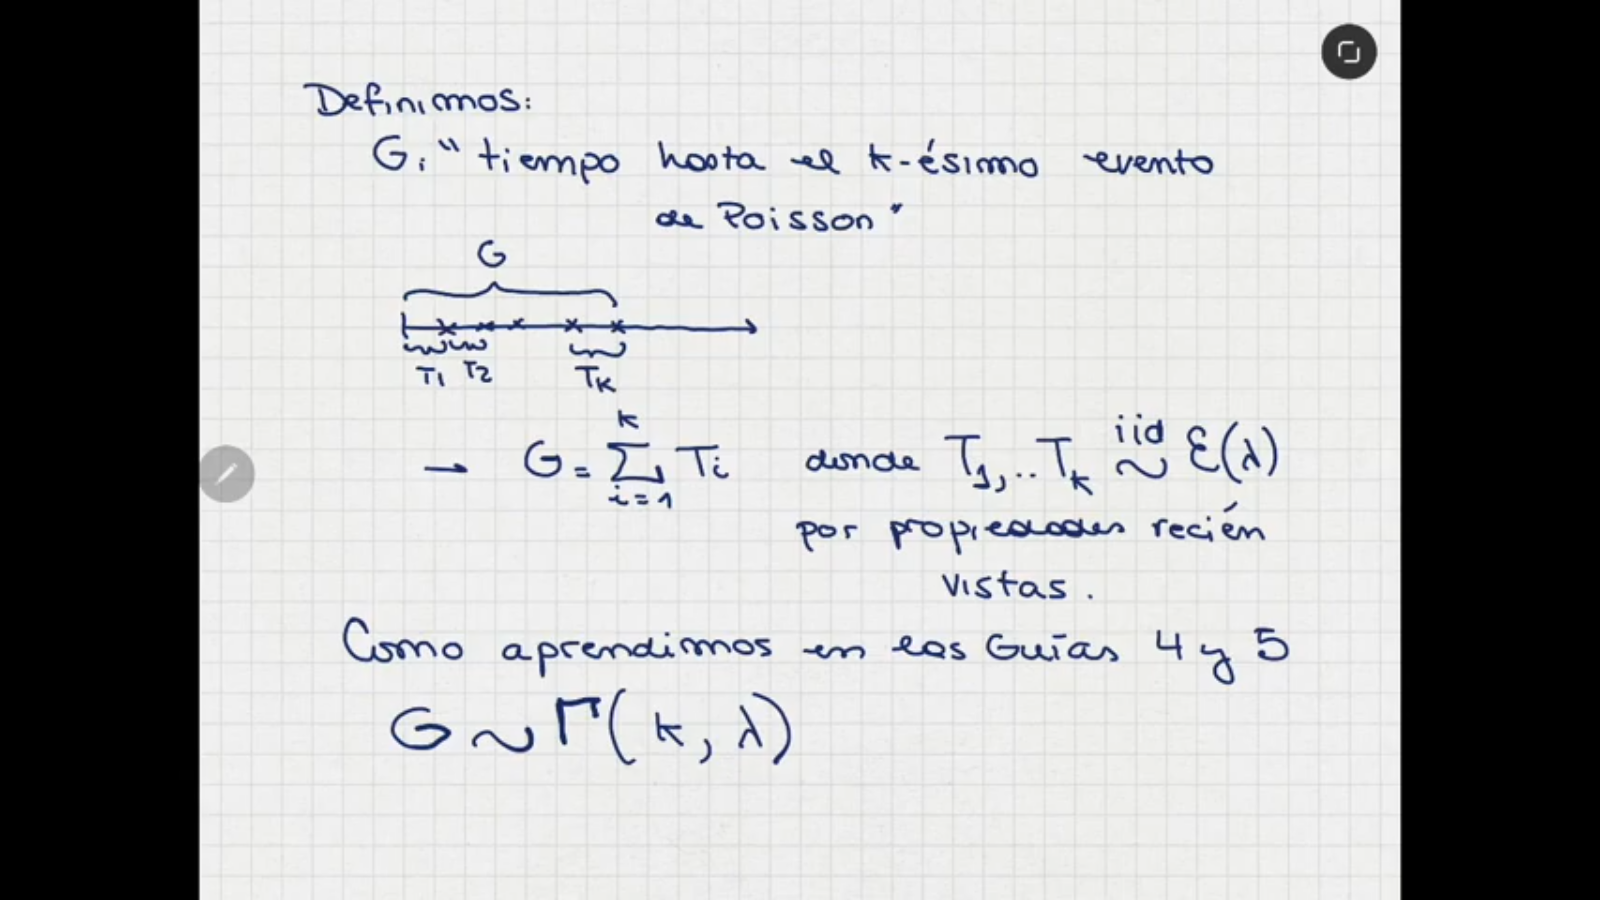 Definimos:
G: "tiempo hasta el k-ésimo evento
de Poisson"
G
T1 T2 Tk
→ G = ∑_{i=1}^{k} Ti donde T1,..Tk iid ~ ℰ(λ)
por propiedades recién
vistas.
Como aprendimos en las Guías 4 y 5
G ~ Γ(k, λ)